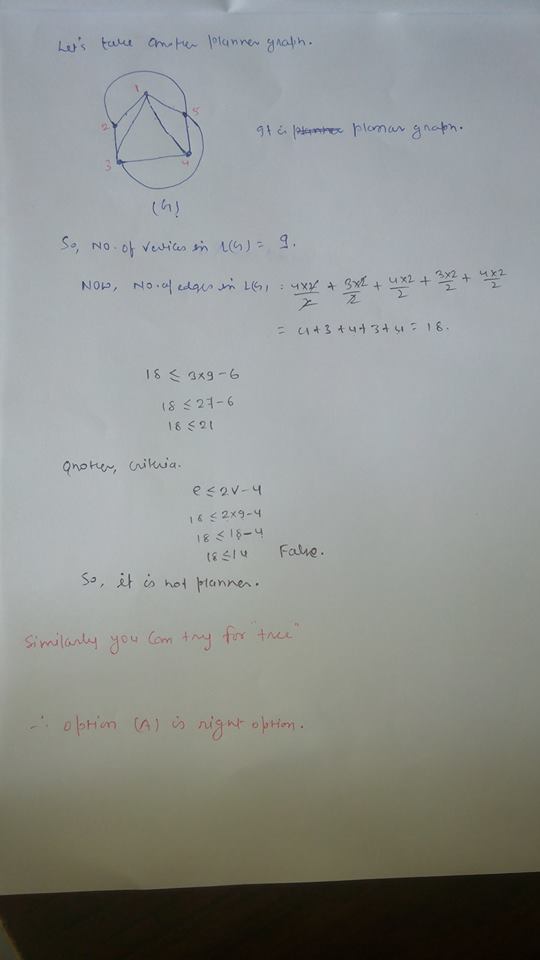 Let's take another planner graph.
1
2
5
3
4
It is planner planar graph.
(G)
So, No. of vertices in L(G) = 9.
Now, No. of edges in L(G) : 4x2/2 + 3x2/2 + 4x2/2 + 3x2/2 + 4x2/2
= 4+3+4+3+4 = 18.
18 ≤ 3x9-6
18 ≤ 27-6
18 ≤ 21
Another, criteria.
e ≤ 2v-4
18 ≤ 2x9-4
18 ≤ 18-4
18 ≤ 14 False.
So, it is not planner.
Similarly you can try for "tree"
∴ option (A) is right option.